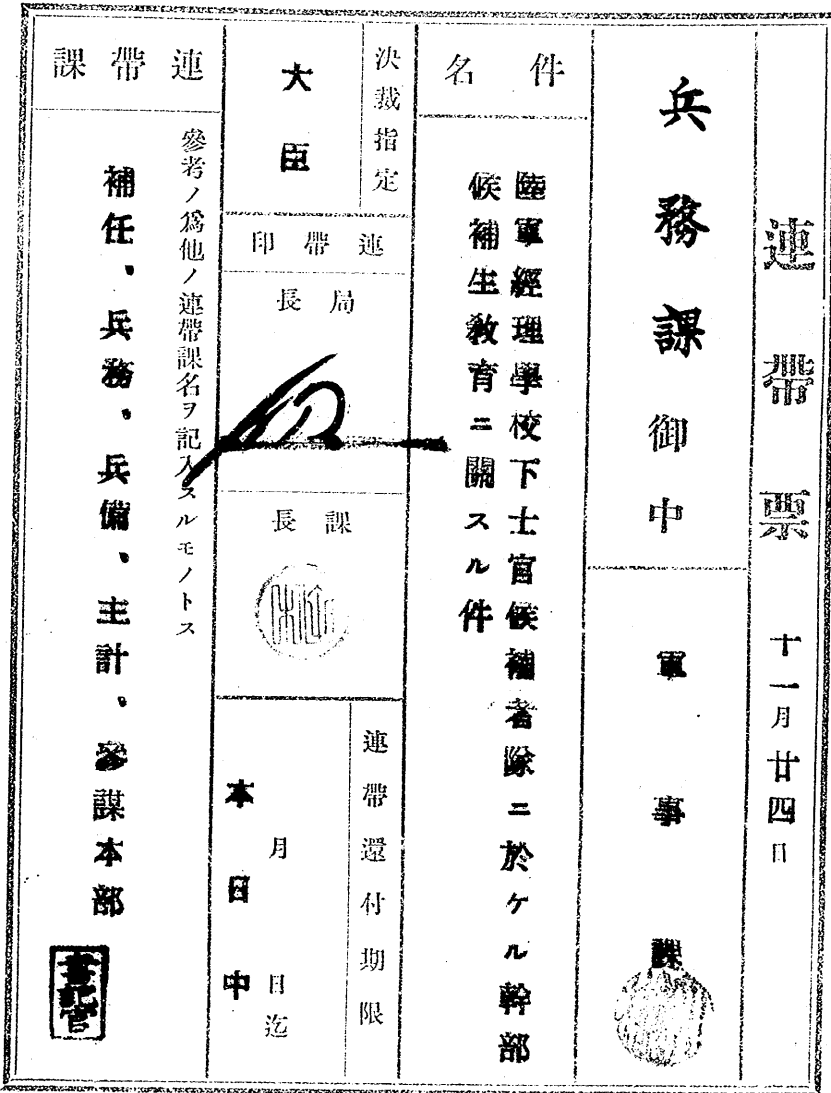 連帶票 十一月廿四日
兵務課御中
軍事課
件名
陸軍經理學校下士官候補者隊ニ於ケル幹部
候補生敎育ニ關スル件
決裁指定
大臣
連帶印
局長
課長
連帶還付期限
月 日迄
本日中
連帶課
參考ノ爲他ノ連帶課名ヲ記入スルモノトス
補任、兵務、兵備、主計、參謀本部
書記官